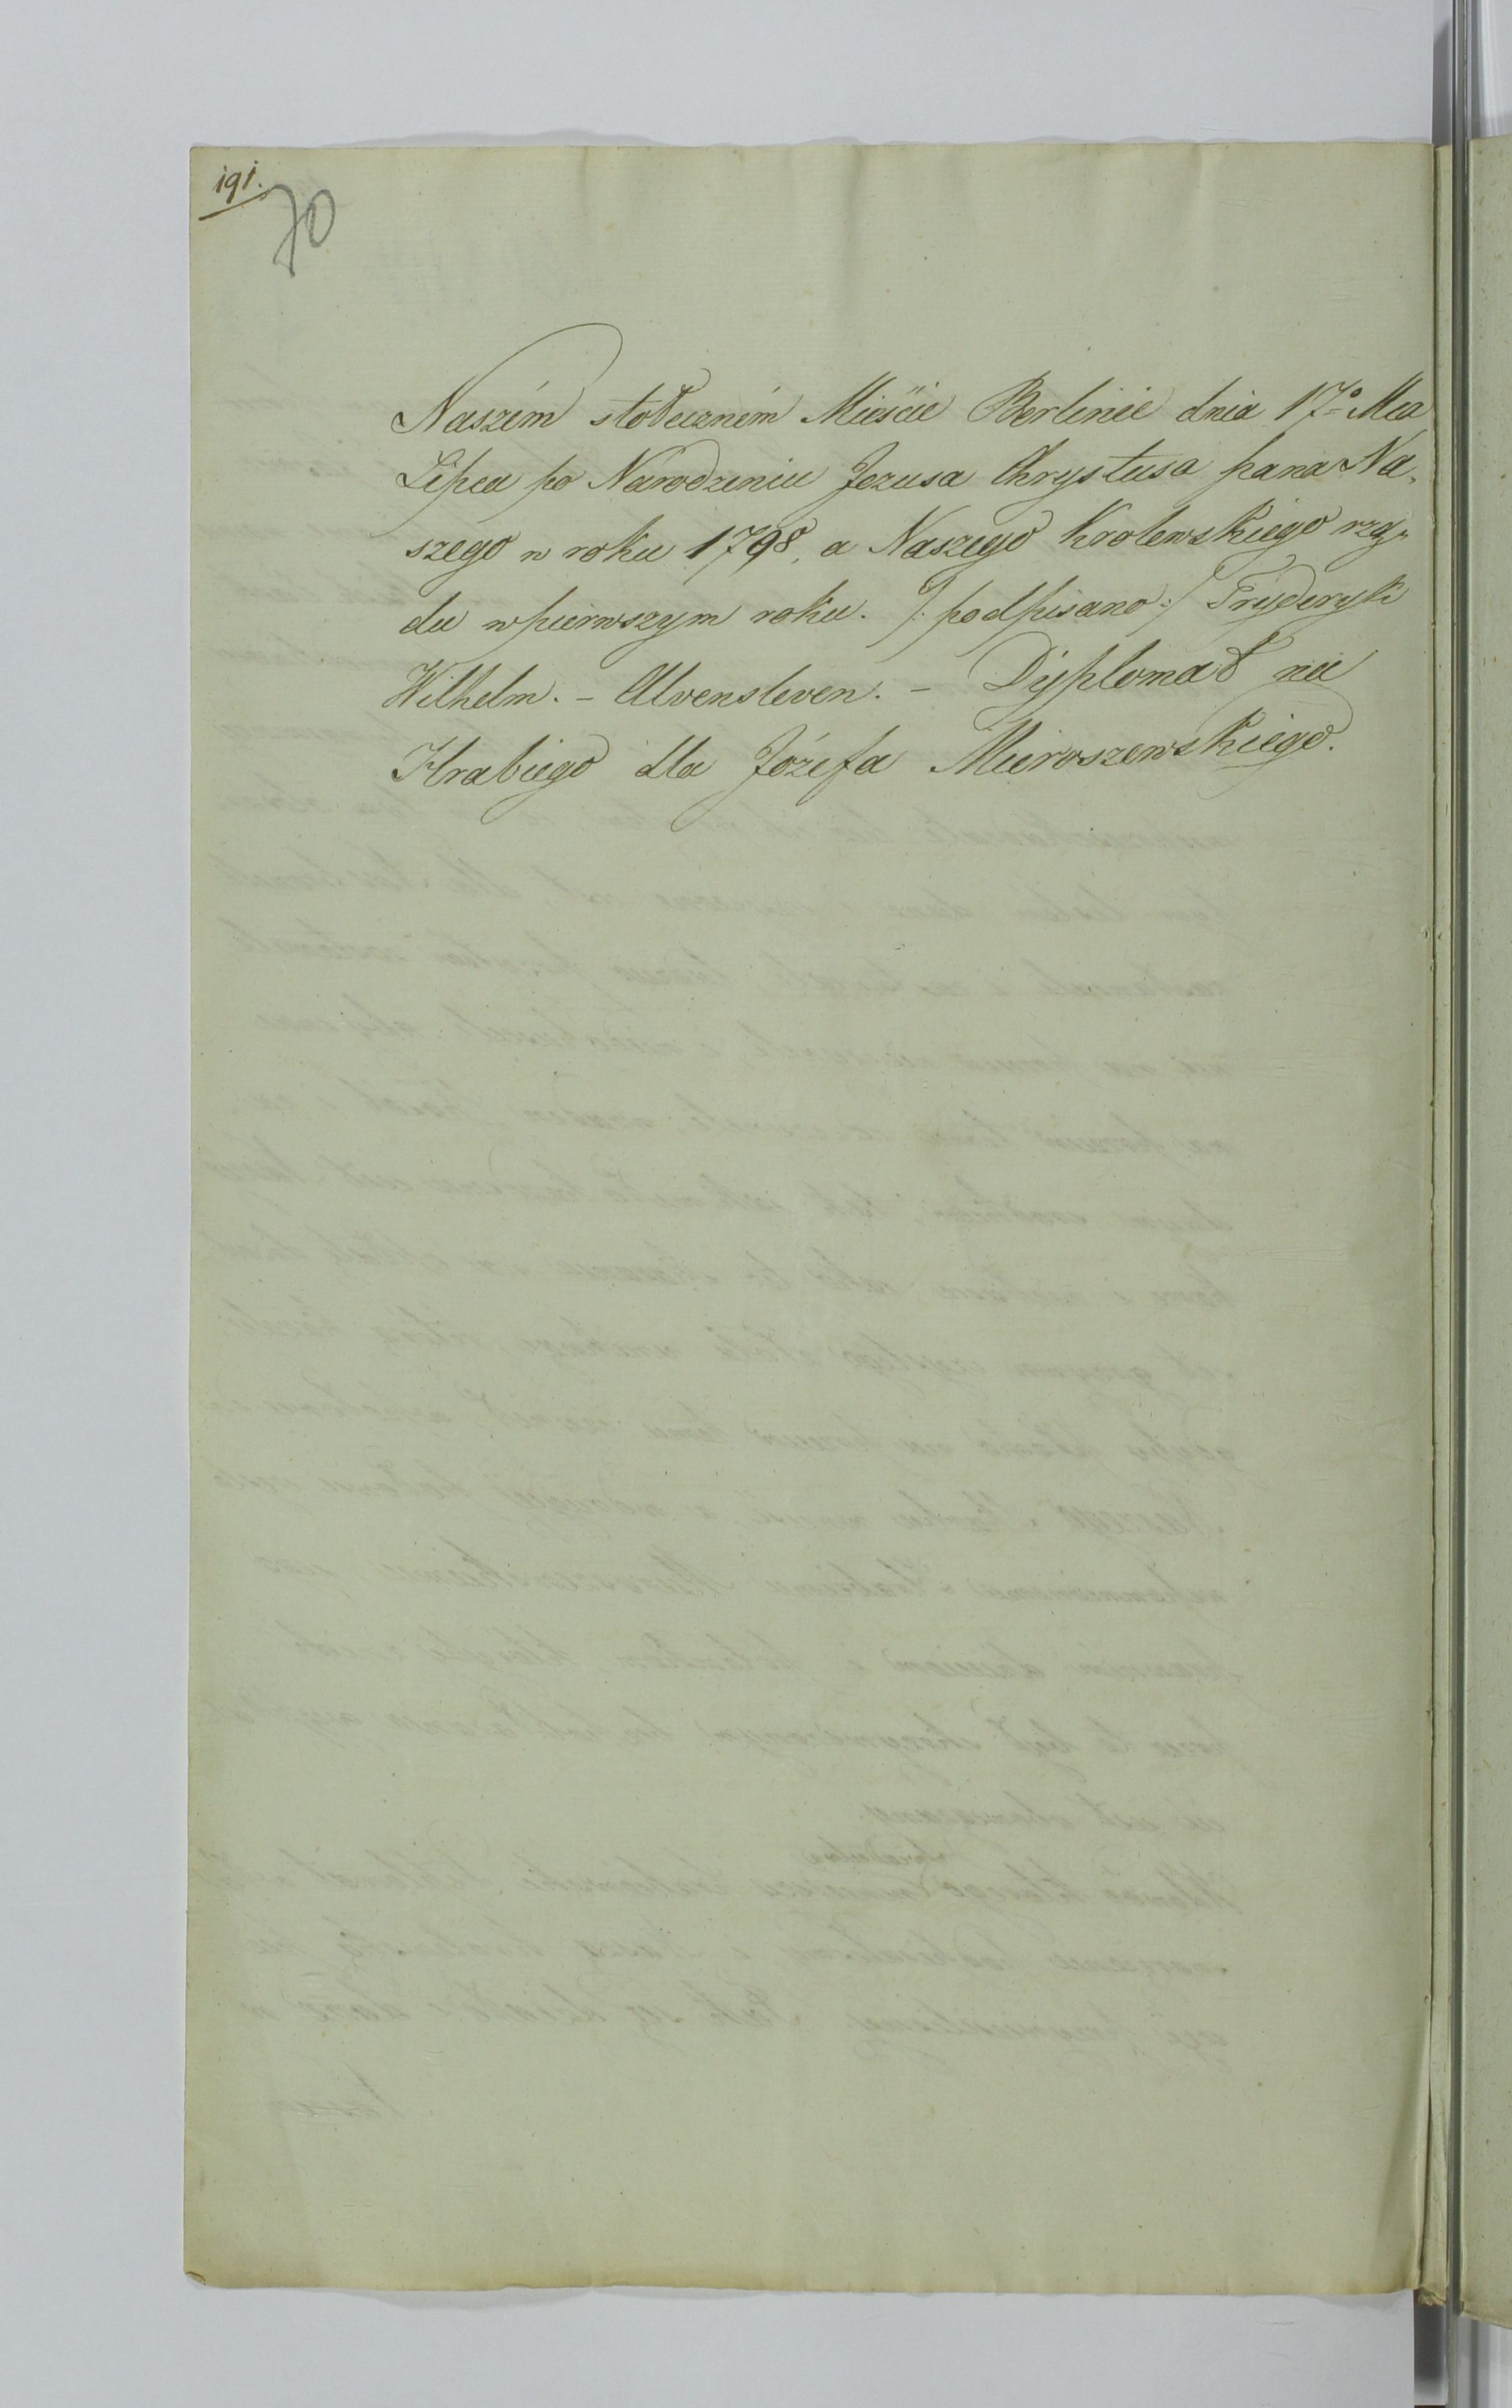 191.
70
Naszém stołeczném Mieście Berlinie dnia 17º Mca
Lipca po Narodzeniu Jezusa Chrystusa pana Na„
szego w roku 1798, a Naszego Krolewskiego rzą„
du w pierwszym roku. /: podpisano :/ Fryderyk
Wilhelm. – Alvensleven. – Dyplomat na
Hrabiego dla Józefa Mieroszewskiego.